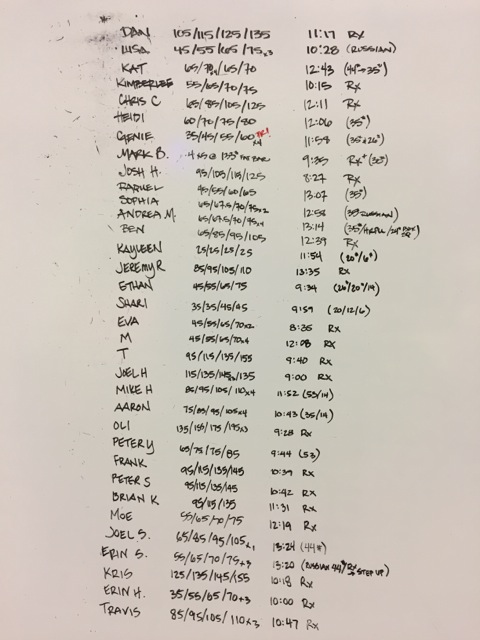 DAN 105/115/125/135 11:17 Rx
LISA 45/55/65/75x3 10:28 (RUSSIAN)
KAT 65/70/65/70 12:43 (44#→35#)
KIMBERLEE 55/65/70/75 10:15 Rx
CHRIS C 65/85/105/125 12:11 Rx
HEIDI 60/70/75/80 12:06 (35#)
GENIE 35/45/55/60 x4 PR! 11:58 (35#26#)
MARK B. 4x5 @ 135# FAT BAR 9:35 Rx+
JOSH H. 95/105/115/125 8:27 Rx
RAQUEL 45/55/60/65 13:07 (35#)
SOPHIA 65/67.5/70/75x2 12:58 (35# RUSSIAN)
ANDREA M. 65/67.5/70/75x4 13:14
BEN 65/85/95/105 12:39 Rx
KAYLEEN 25/25/25/25 11:54 (20#/6#)
JEREMY R 85/95/105/110 13:35 Rx
ETHAN 45/55/65/75 9:34 (26#/20#/14)
SHARI 35/35/45/45 9:59 (20/12/6)
EVA 45/55/65/70x2 8:35 Rx
M 45/55/65/70x4 12:08 Rx
T 95/115/135/155 9:40 Rx
JOEL H 115/135/145x3/135 9:00 Rx
MIKE H 85/95/105/110x4 11:52 (53/14)
AARON 75/85/95/105x4 10:43 (35/14)
OLI 135/155/175/195x3 9:28 Rx
PETER Y 65/75/75/85 9:44 (53)
FRANK 95/115/135/145 10:39 Rx
PETER S 95/115/135/145 10:42 Rx
BRIAN K 95/115/135 11:31 Rx
MOE 55/65/70/75 12:19 Rx
JOEL S. 65/85/95/105x1 13:24 (44#)
ERIN S. 55/65/70/75x3 13:20 (RUSSIAN 44#/Rx → STEP UP)
KRIS 125/135/145/155 10:18 Rx
ERIN H. 35/55/65/70x3 10:00 Rx
TRAVIS 85/95/105/110x3 10:47 Rx